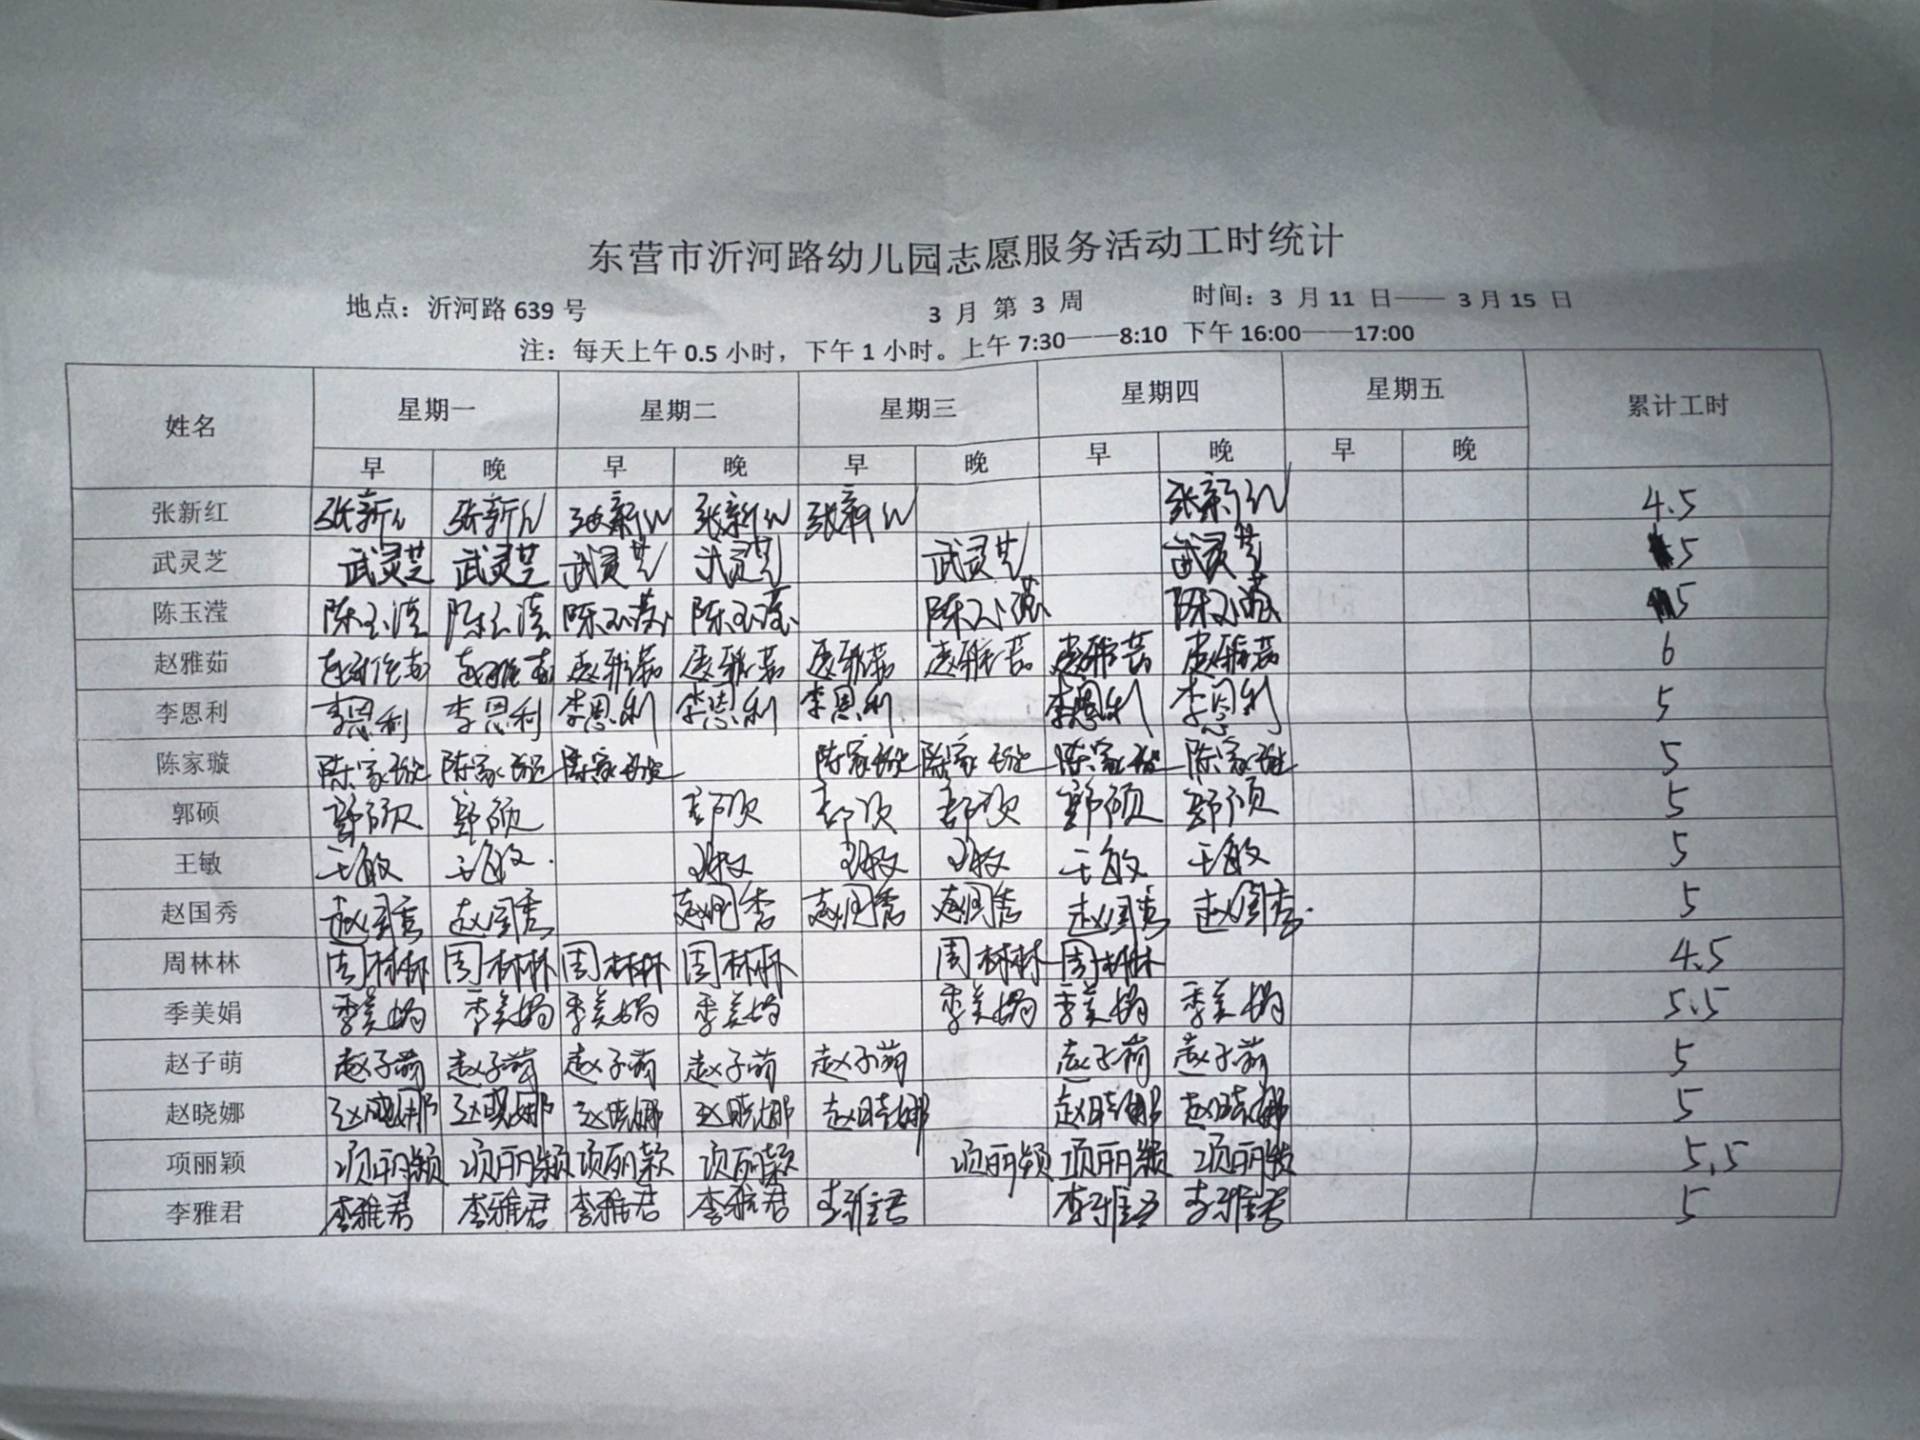 东营市沂河路幼儿园志愿服务活动工时统计
地点：沂河路 639 号 3 月 第 3 周 时间：3 月 11 日—— 3 月 15 日
注：每天上午 0.5 小时，下午 1 小时。上午 7:30——8:10 下午 16:00——17:00
姓名 星期一 星期二 星期三 星期四 星期五 累计工时
早 晚 早 晚 早 晚 早 晚 早 晚
张新红 张新红 张新红 张新红 张新红 张新红 张新红 4.5
武灵芝 武灵芝 武灵芝 武灵芝 武灵芝 武灵芝 武灵芝 5
陈玉滢 陈玉滢 陈玉滢 陈玉滢 陈玉滢 陈玉滢 陈玉滢 5
赵雅茹 赵雅茹 赵雅茹 赵雅茹 赵雅茹 赵雅茹 赵雅茹 赵雅茹 赵雅茹 6
李恩利 李恩利 李恩利 李恩利 李恩利 李恩利 李恩利 李恩利 5
陈家璇 陈家璇 陈家璇 陈家璇 陈家璇 陈家璇 陈家璇 陈家璇 5
郭硕 郭硕 郭硕 郭硕 郭硕 郭硕 郭硕 郭硕 5
王敏 王敏 王敏 王敏 王敏 王敏 王敏 王敏 5
赵国秀 赵国秀 赵国秀 赵国秀 赵国秀 赵国秀 赵国秀 赵国秀 5
周林林 周林林 周林林 周林林 周林林 周林林 周林林 4.5
季美娟 季美娟 季美娟 季美娟 季美娟 季美娟 季美娟 季美娟 5.5
赵子萌 赵子萌 赵子萌 赵子萌 赵子萌 赵子萌 赵子萌 赵子萌 5
赵晓娜 赵晓娜 赵晓娜 赵晓娜 赵晓娜 赵晓娜 赵晓娜 赵晓娜 5
项丽颖 项丽颖 项丽颖 项丽颖 项丽颖 项丽颖 项丽颖 项丽颖 5.5
李雅君 李雅君 李雅君 李雅君 李雅君 李雅君 李雅君 李雅君 5